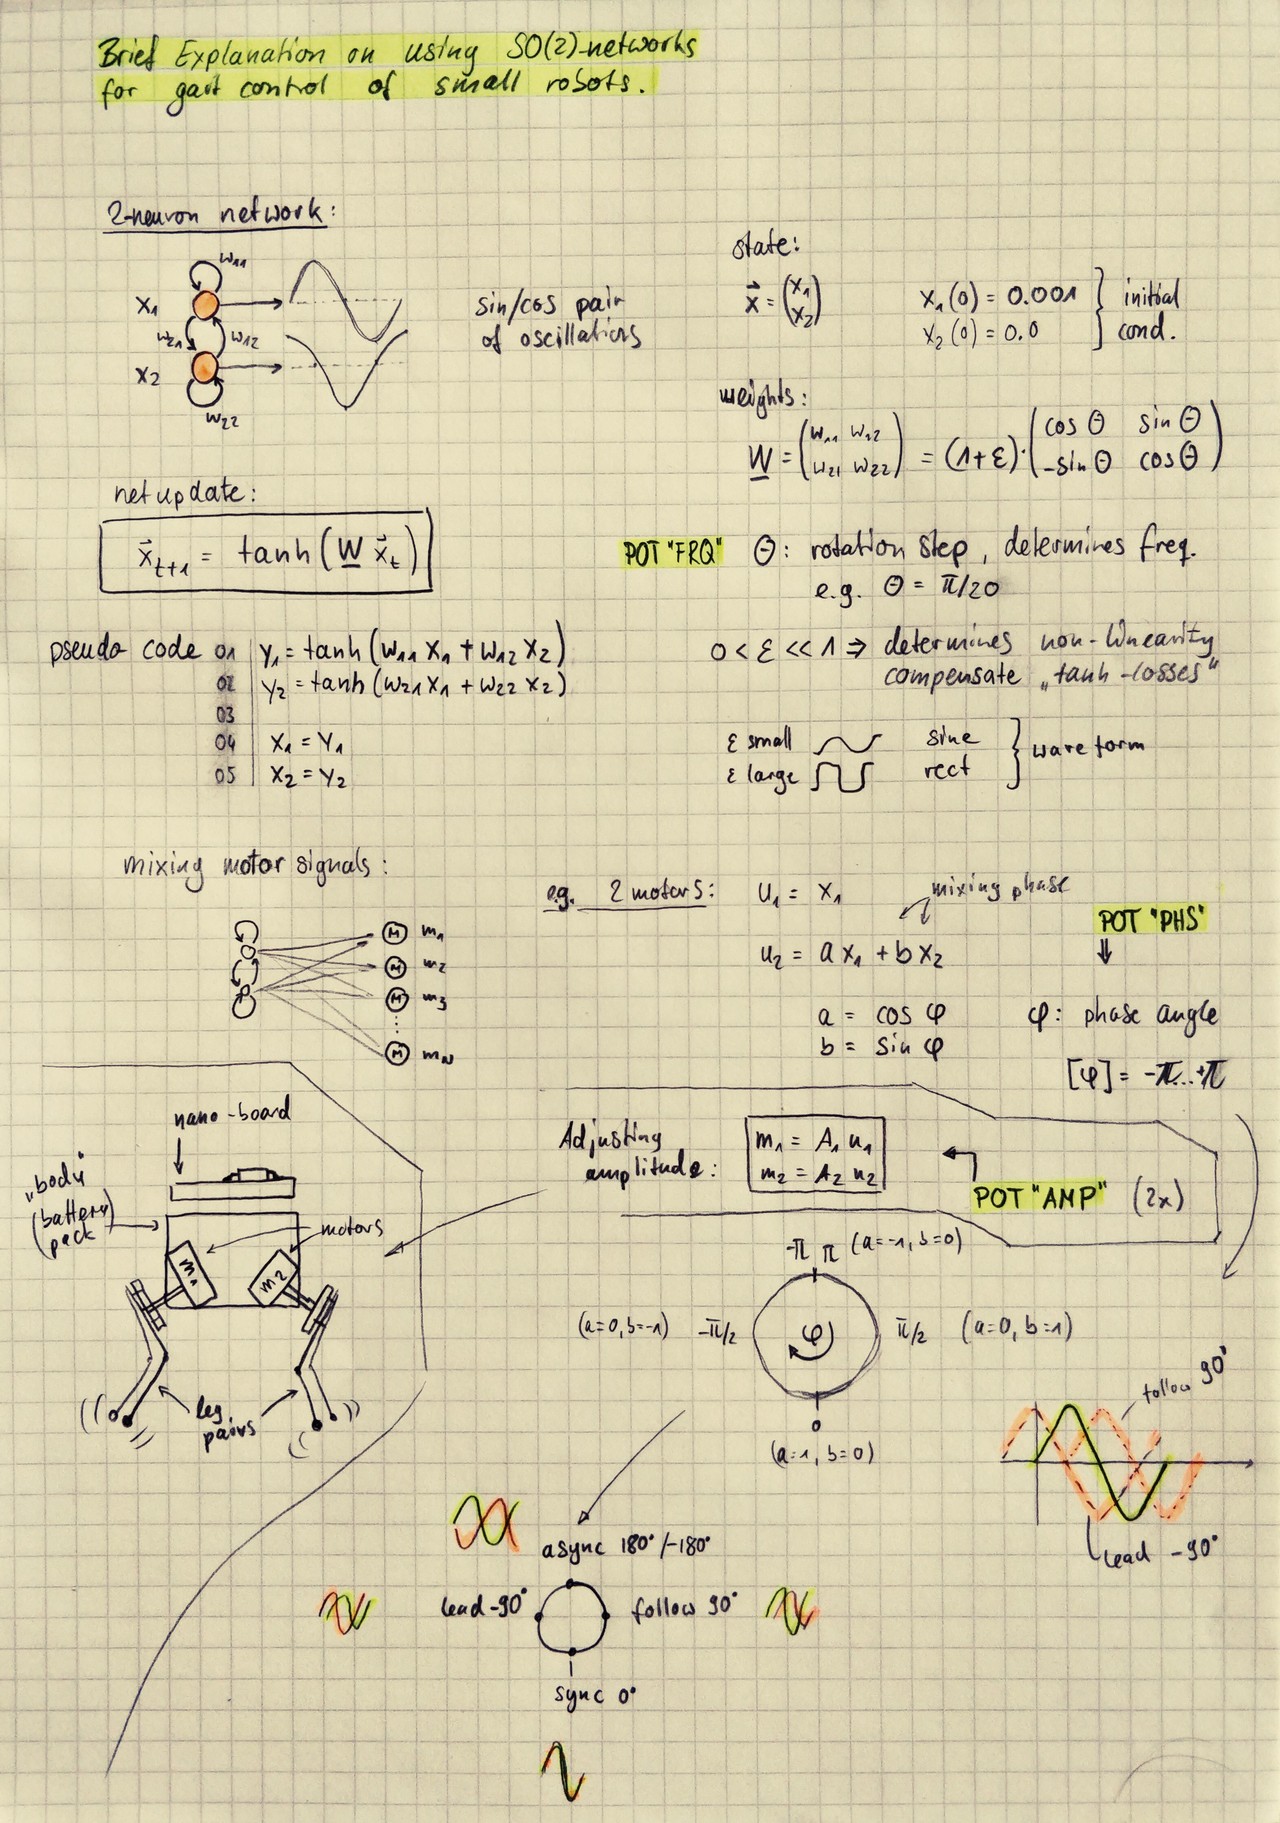 Brief Explanation on using SO(2)-networks
for gait control of small robots.
2-neuron network:
w11
x1
w21 w12
x2
w22
sin/cos pair
of oscillations
state:
x⃗ = (x1 x2)
x1(0) = 0.001
x2(0) = 0.0
initial
cond.
weights:
W = (w11 w12 w21 w22) = (1+ε)·(cos Θ sin Θ -sin Θ cos Θ)
net update:
x⃗t+1 = tanh(W x⃗t)
POT "FRQ" Θ: rotation step, determines freq.
e.g. Θ = π/20
pseudo code 01 y1 = tanh(w11 x1 + w12 x2)
02 y2 = tanh(w21 x1 + w22 x2)
03
04 x1 = y1
05 x2 = y2
0 < ε << 1 ⇒ determines non-linearity
compensate „tanh-losses"
ε small sine
ε large rect
wave form
mixing motor signals:
M m1
M m2
M m3
M mN
e.g. 2 motors: u1 = x1
mixing phase
u2 = a x1 + b x2
a = cos φ
b = sin φ
POT "PHS"
⇓
φ: phase angle
[φ] = -π...+π
nano-board
„body"
(battery)
pack
motors
m1
m2
leg
pairs
Adjusting
amplitude:
m1 = A1 u1
m2 = A2 u2
POT "AMP" (2x)
-π π (a=-1, b=0)
(a=0, b=-1) -π/2 φ π/2 (a=0, b=1)
0
(a=1, b=0)
follow 90°
lead -90°
async 180°/-180°
lead -90° follow 90°
sync 0°